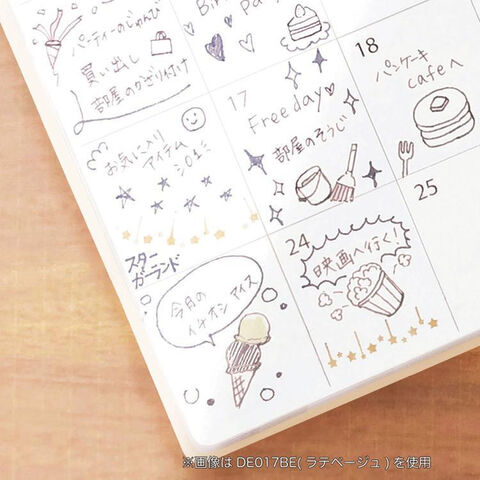 パーティーのじゅんび
買い出し
部屋のかざり付け
17
Freeday♡
部屋のそうじ
18
パンケーキ
cafeへ
お気に入り
アイテム
スターガーランド
24
映画へ行く!
25
今月の
イチオシ アイス
※画像は DE017BE( ラテベージュ ) を使用